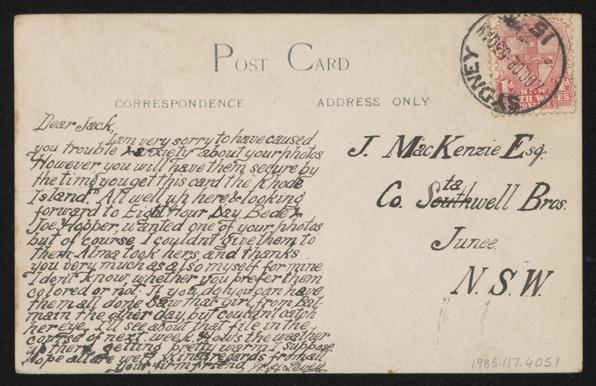 POST CARD
CORRESPONDENCE
ADDRESS ONLY
SYDNEY
N.S.W.
Dear Jack,
I am very sorry to have caused
you trouble & anxiety about your photos
However you will have them secure by
the time you get this card the Rhode
Island. All well up here & looking
forward to Eight Hour Day. Bede &
Joe Hopper wanted one of your photos
but of course I couldnt give them to
them. Alma took hers and thanks
you very much as also myself for mine
I dont know whether you prefer them
colored or not. If you do you can have
them all done. Saw that girl from Bal
main the other day but couldnt catch
her eye. I'll see about that file in the
course of next week. How's the weather
up there, getting pretty warm I suppose
Hope all are well. Kind regards from all
Your firm friend
J. MacKenzie Esq.
Co. Southwell Bros.
ta
Junee.
N.S.W.
1985.117.4051